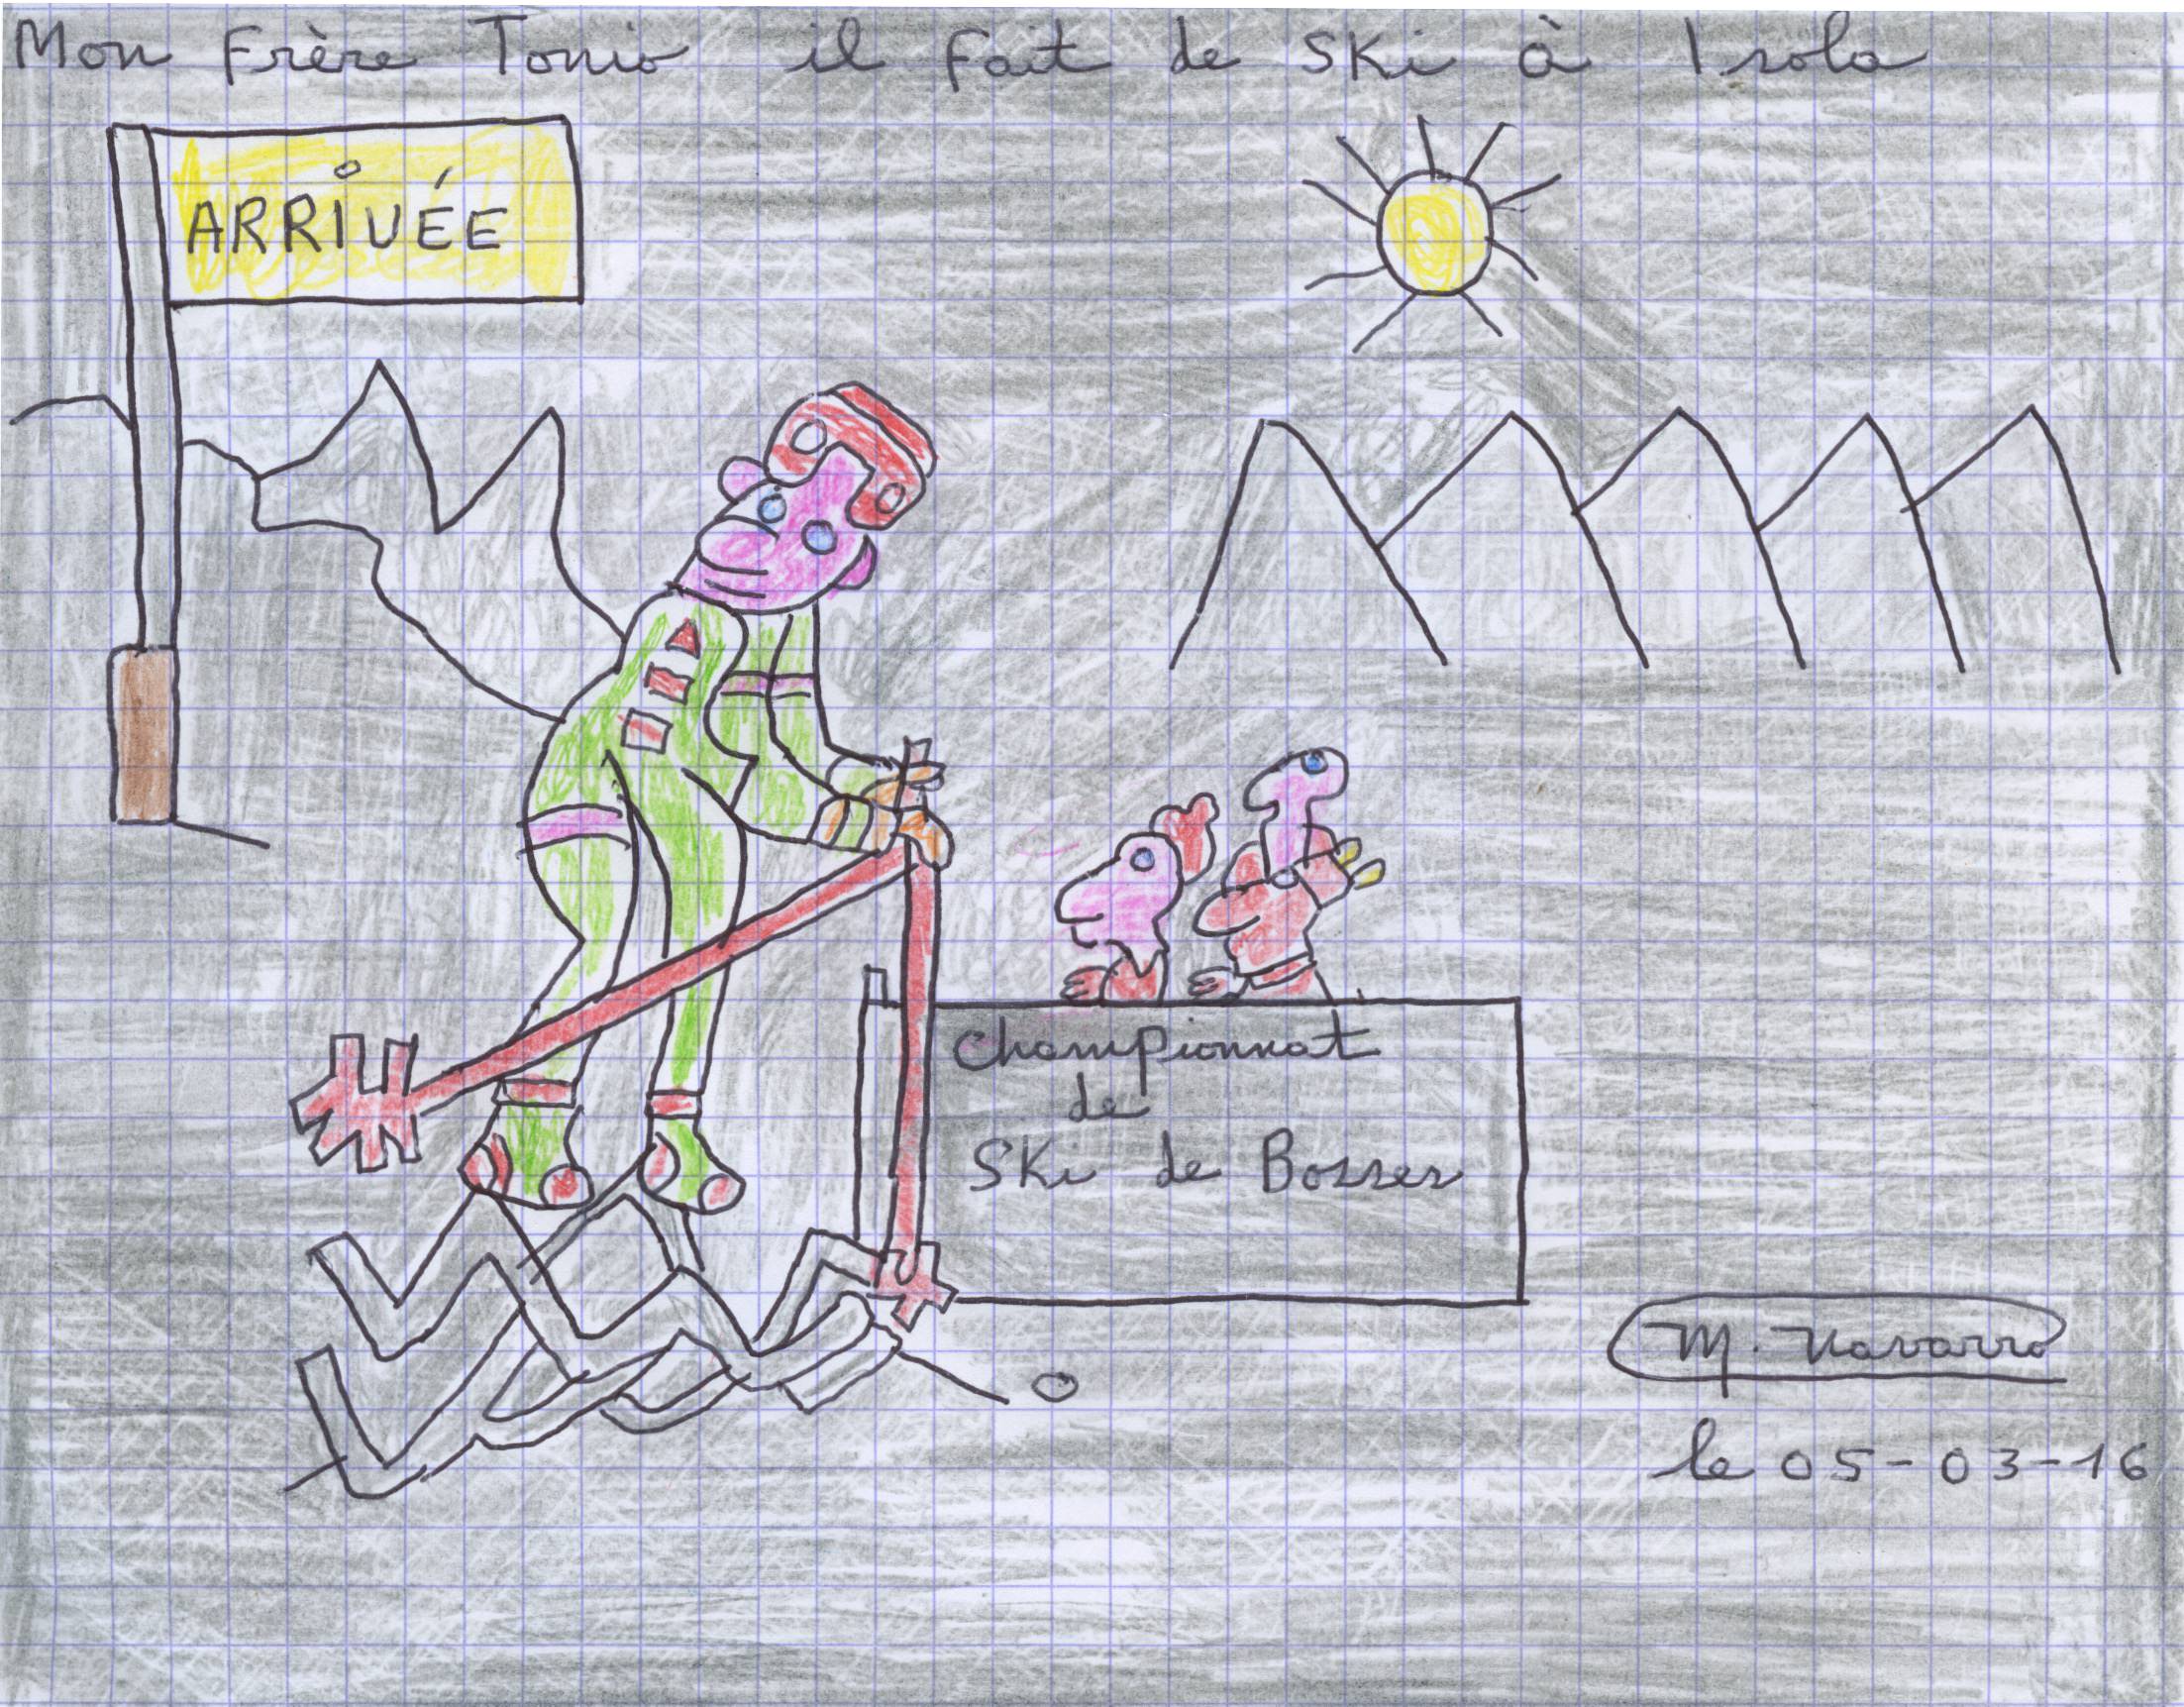 Mon Frère Tonio il fait de Ski à Isola
ARRIVÉE
Championnat
de
Ski de Bosses
M. Navarro
le 05-03-16